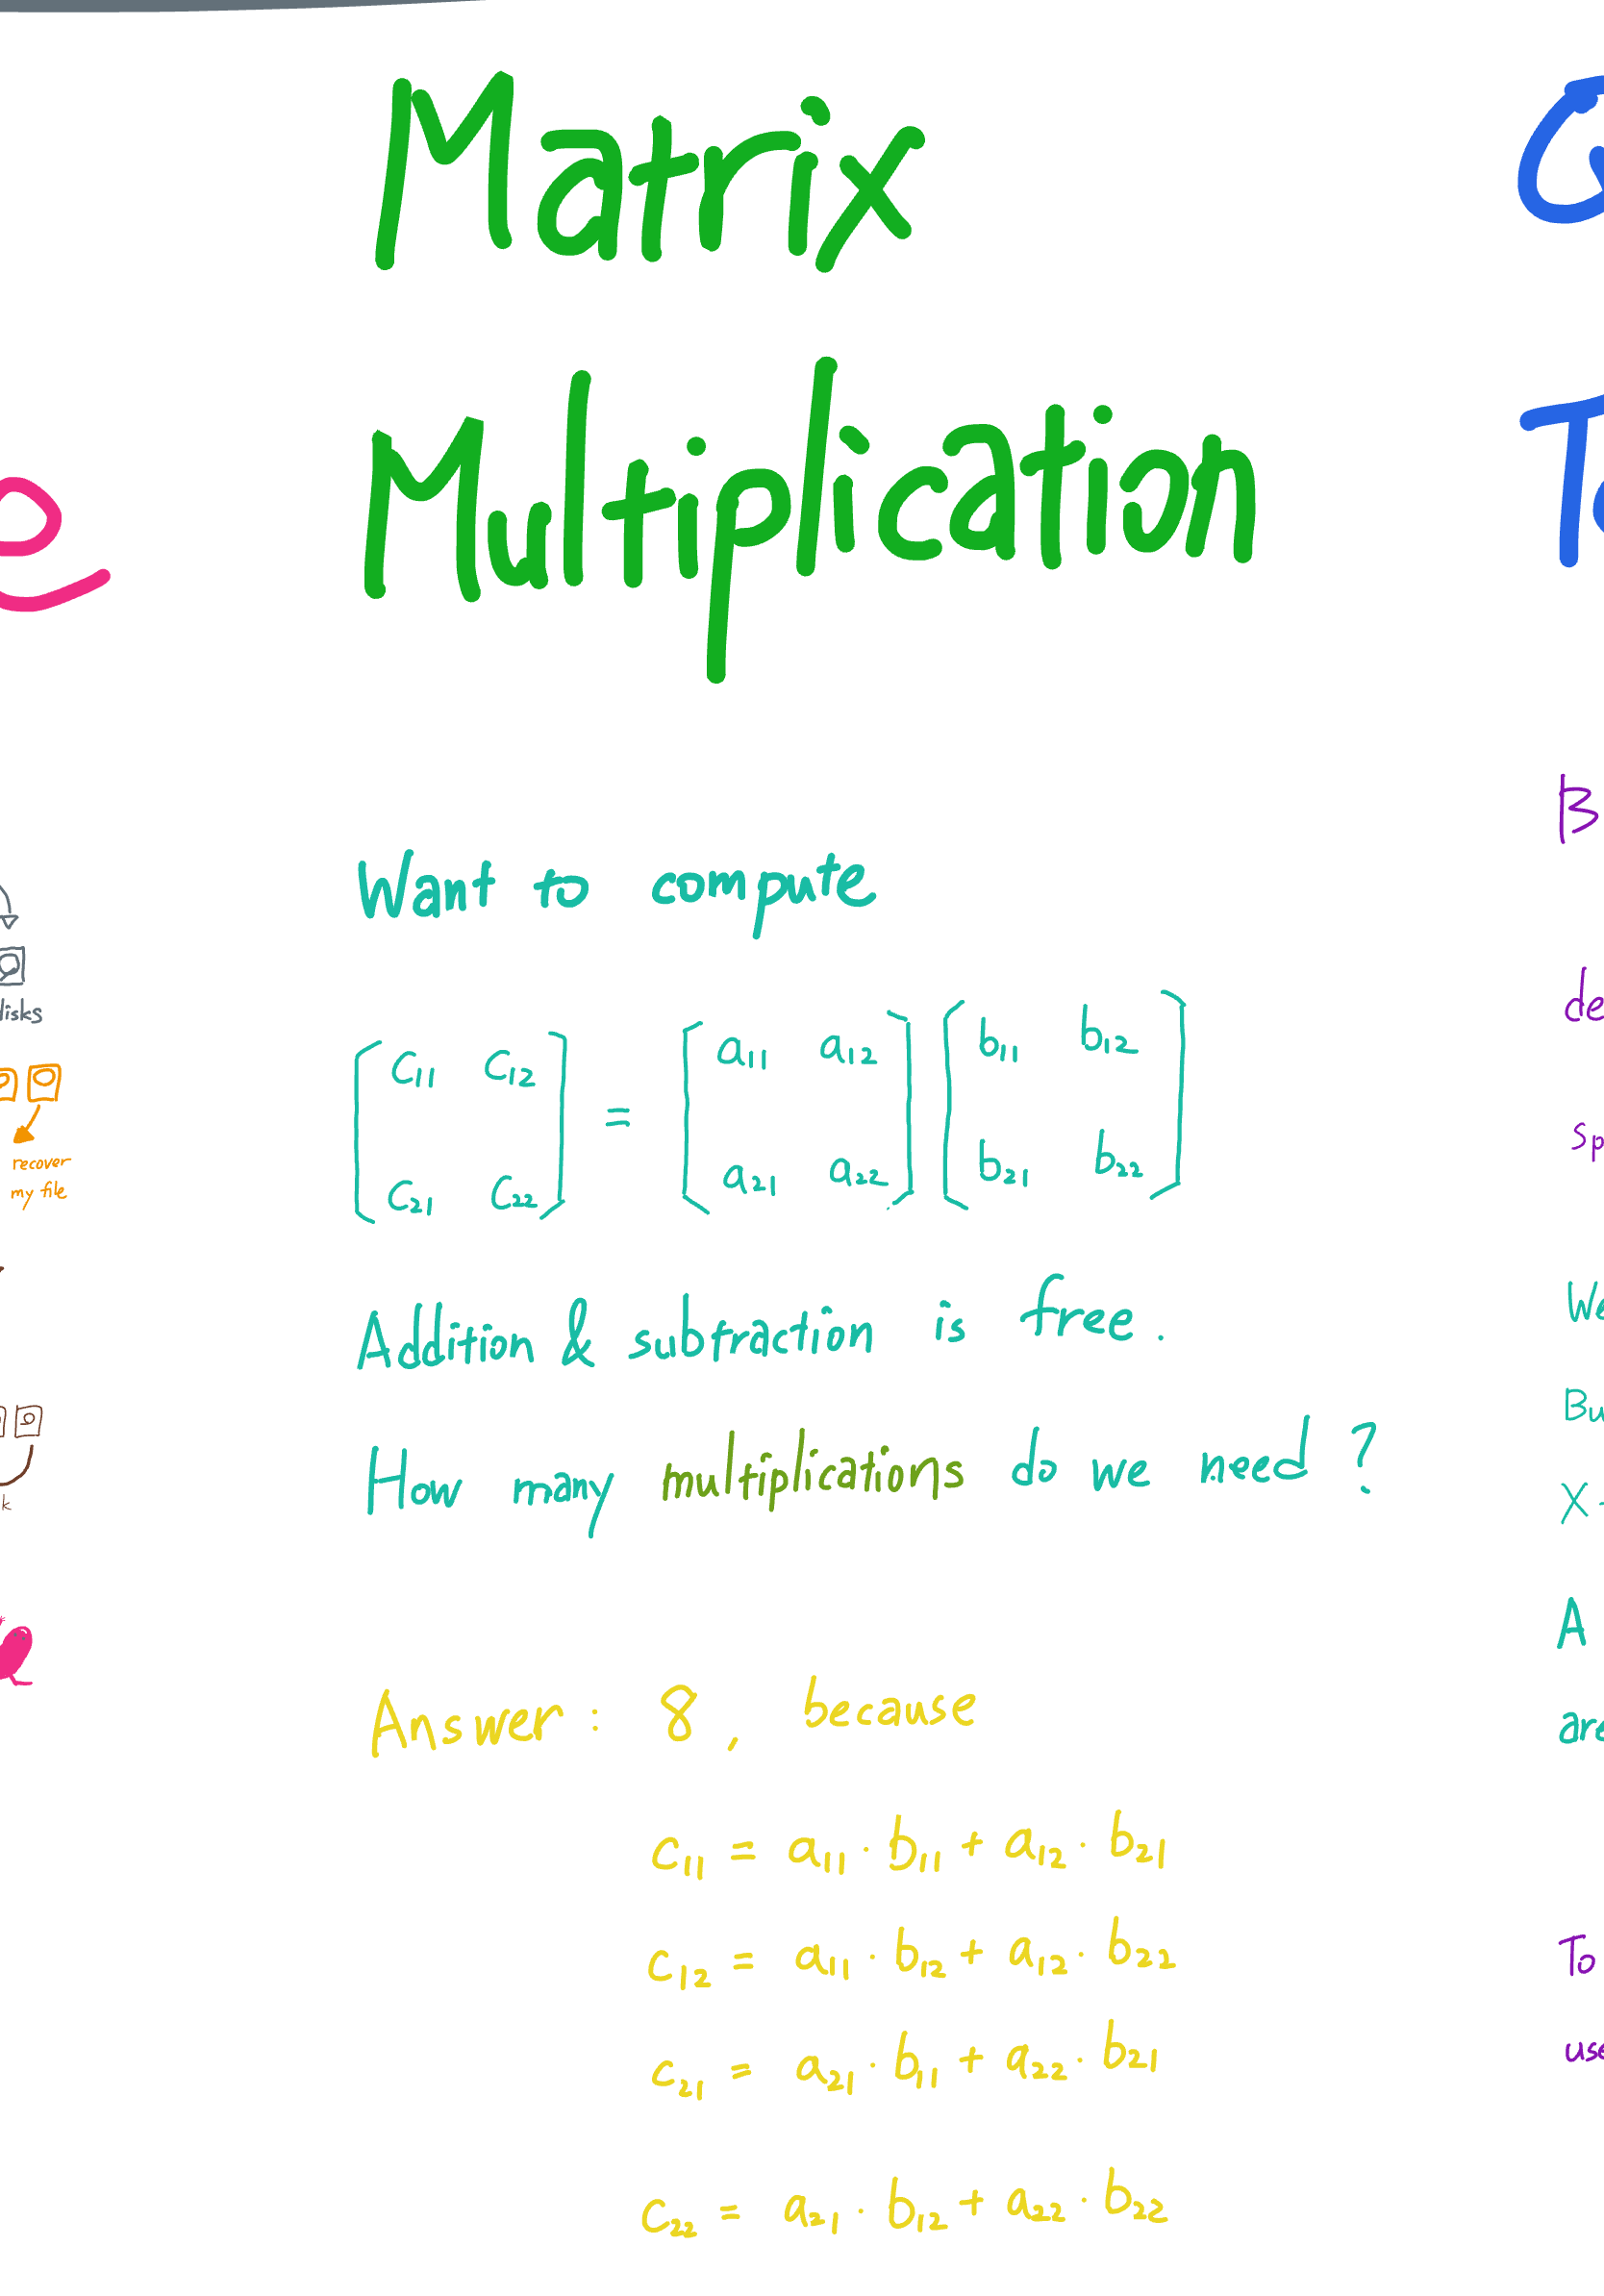 Matrix
Multiplication
Want to compute
[ c₁₁ c₁₂ ] = [ a₁₁ a₁₂ ] [ b₁₁ b₁₂ ]
[ c₂₁ c₂₂ ] [ a₂₁ a₂₂ ] [ b₂₁ b₂₂ ]
Addition & subtraction is free.
How many multiplications do we need?
Answer: 8, because
c₁₁ = a₁₁ · b₁₁ + a₁₂ · b₂₁
c₁₂ = a₁₁ · b₁₂ + a₁₂ · b₂₂
c₂₁ = a₂₁ · b₁₁ + a₂₂ · b₂₁
c₂₂ = a₂₁ · b₁₂ + a₂₂ · b₂₂
recover
my file
To
A